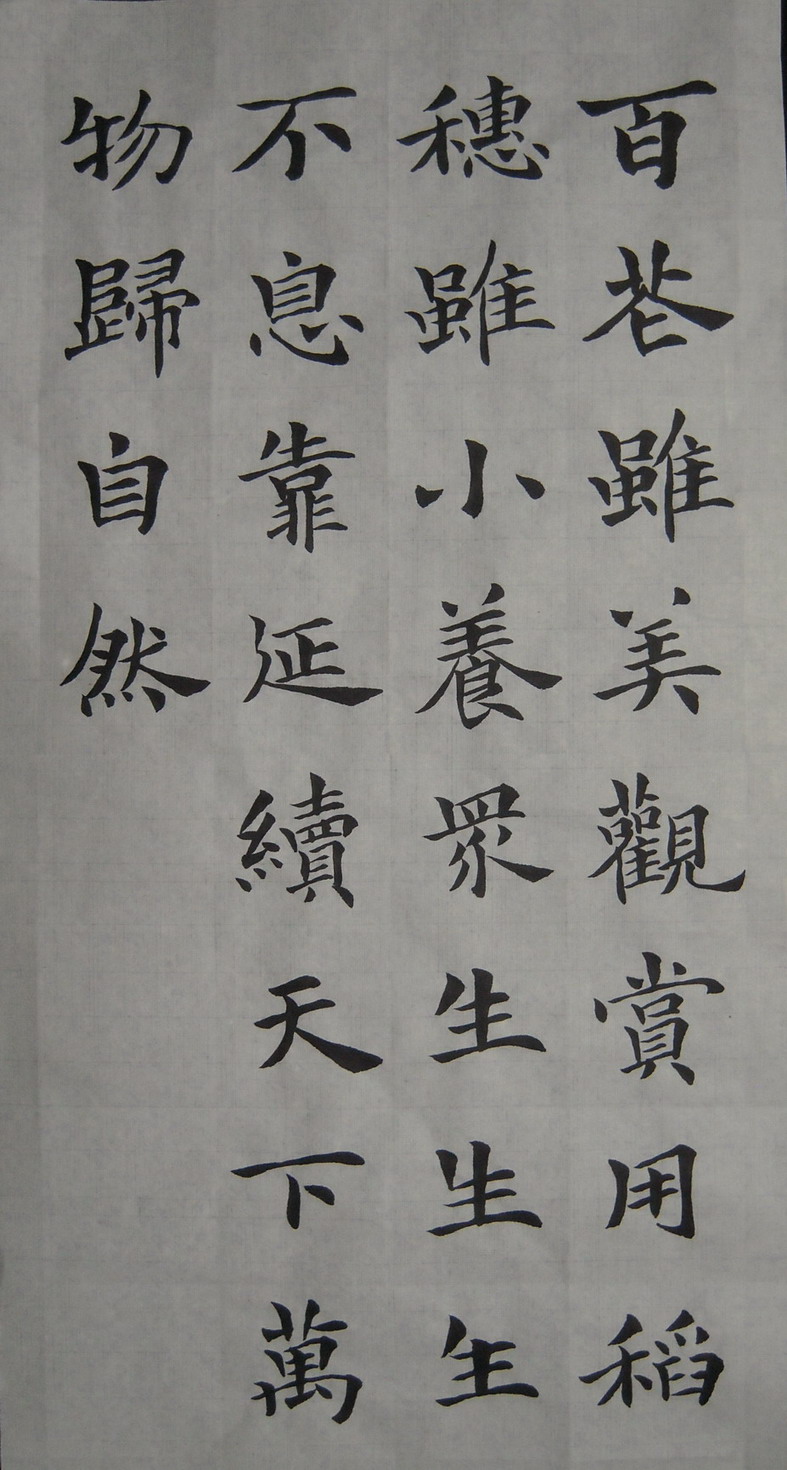 百花雖美觀賞用稻
穗雖小養眾生生生
不息靠延續天下萬
物歸自然